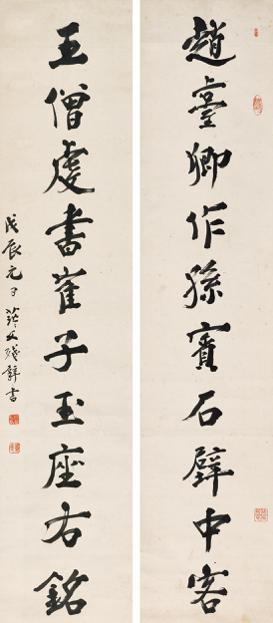 趙臺卿作孫賓石壁中客
王僧虔書崔子玉座右銘
戊辰元日書